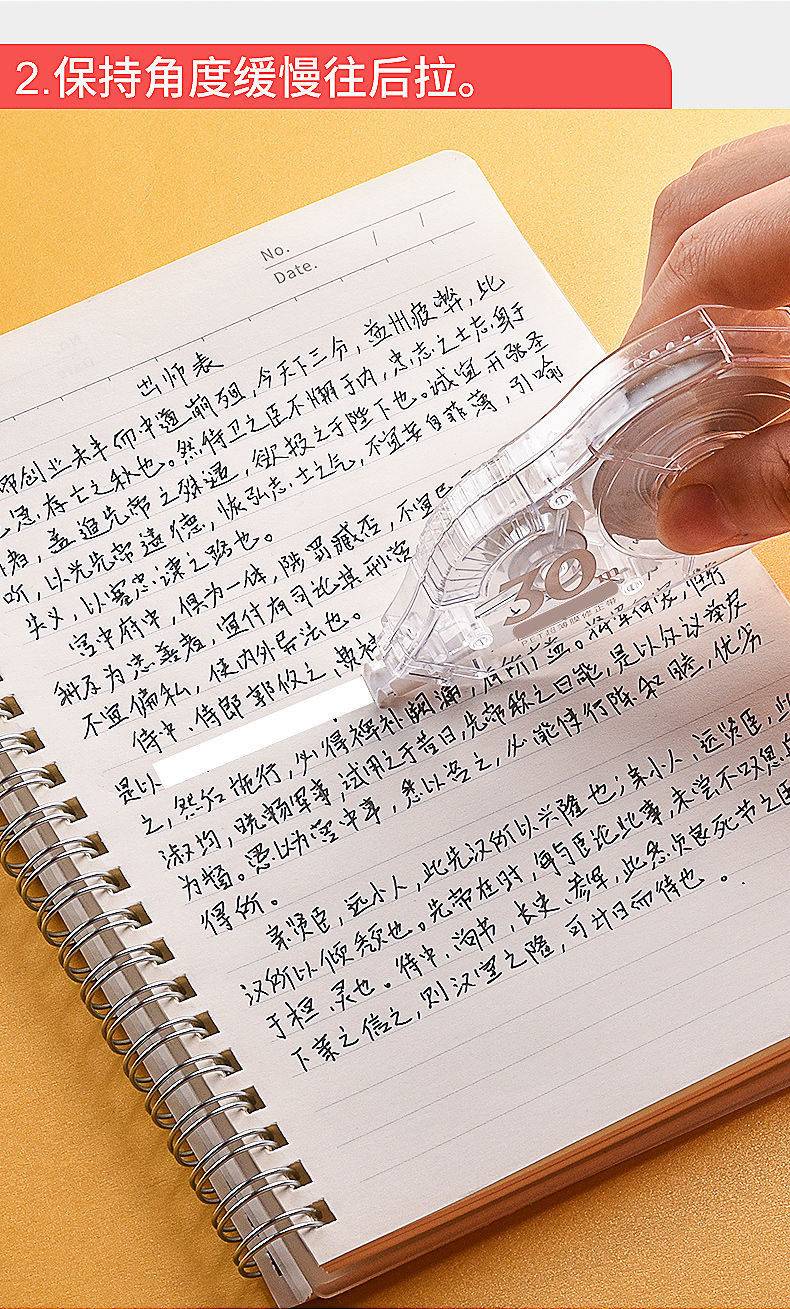 2.保持角度缓慢往后拉。
No.
Date.
/ /
出师表
帝创业未半而中道崩殂，今天下三分，益州疲弊，此
急存亡之秋也。然侍卫之臣不懈于内，忠志之士忘身于
者，盖追先帝之殊遇，欲报之于陛下也。诚宜开张圣
听，以光先帝遗德，恢弘志士之气，不宜妄自菲薄，引喻
失义，以塞忠谏之路也。
宫中府中，俱为一体，陟罚臧否，不宜
科及为忠善者，宜付有司论其刑赏
不宜偏私，使内外异法也。
侍中、侍郎郭攸之、
是以
之，然后施行，必得裨补阙漏，有所广益。将军向宠，性行
淑均，晓畅军事，试用之于昔日，先帝称之曰能，是以众议举宠
为督。愚以为营中事，悉以咨之，必能使行阵和睦，优劣
得所。
亲贤臣，远小人，此先汉所以兴隆也；亲小人，远贤臣，此
汉所以倾颓也。先帝在时，每与臣论此事，未尝不叹息
于桓、灵也。侍中、尚书、长史、参军，此悉贞良死节之臣
下亲之信之，则汉室之隆，可计日而待也。
30m
PET超薄膜修正带